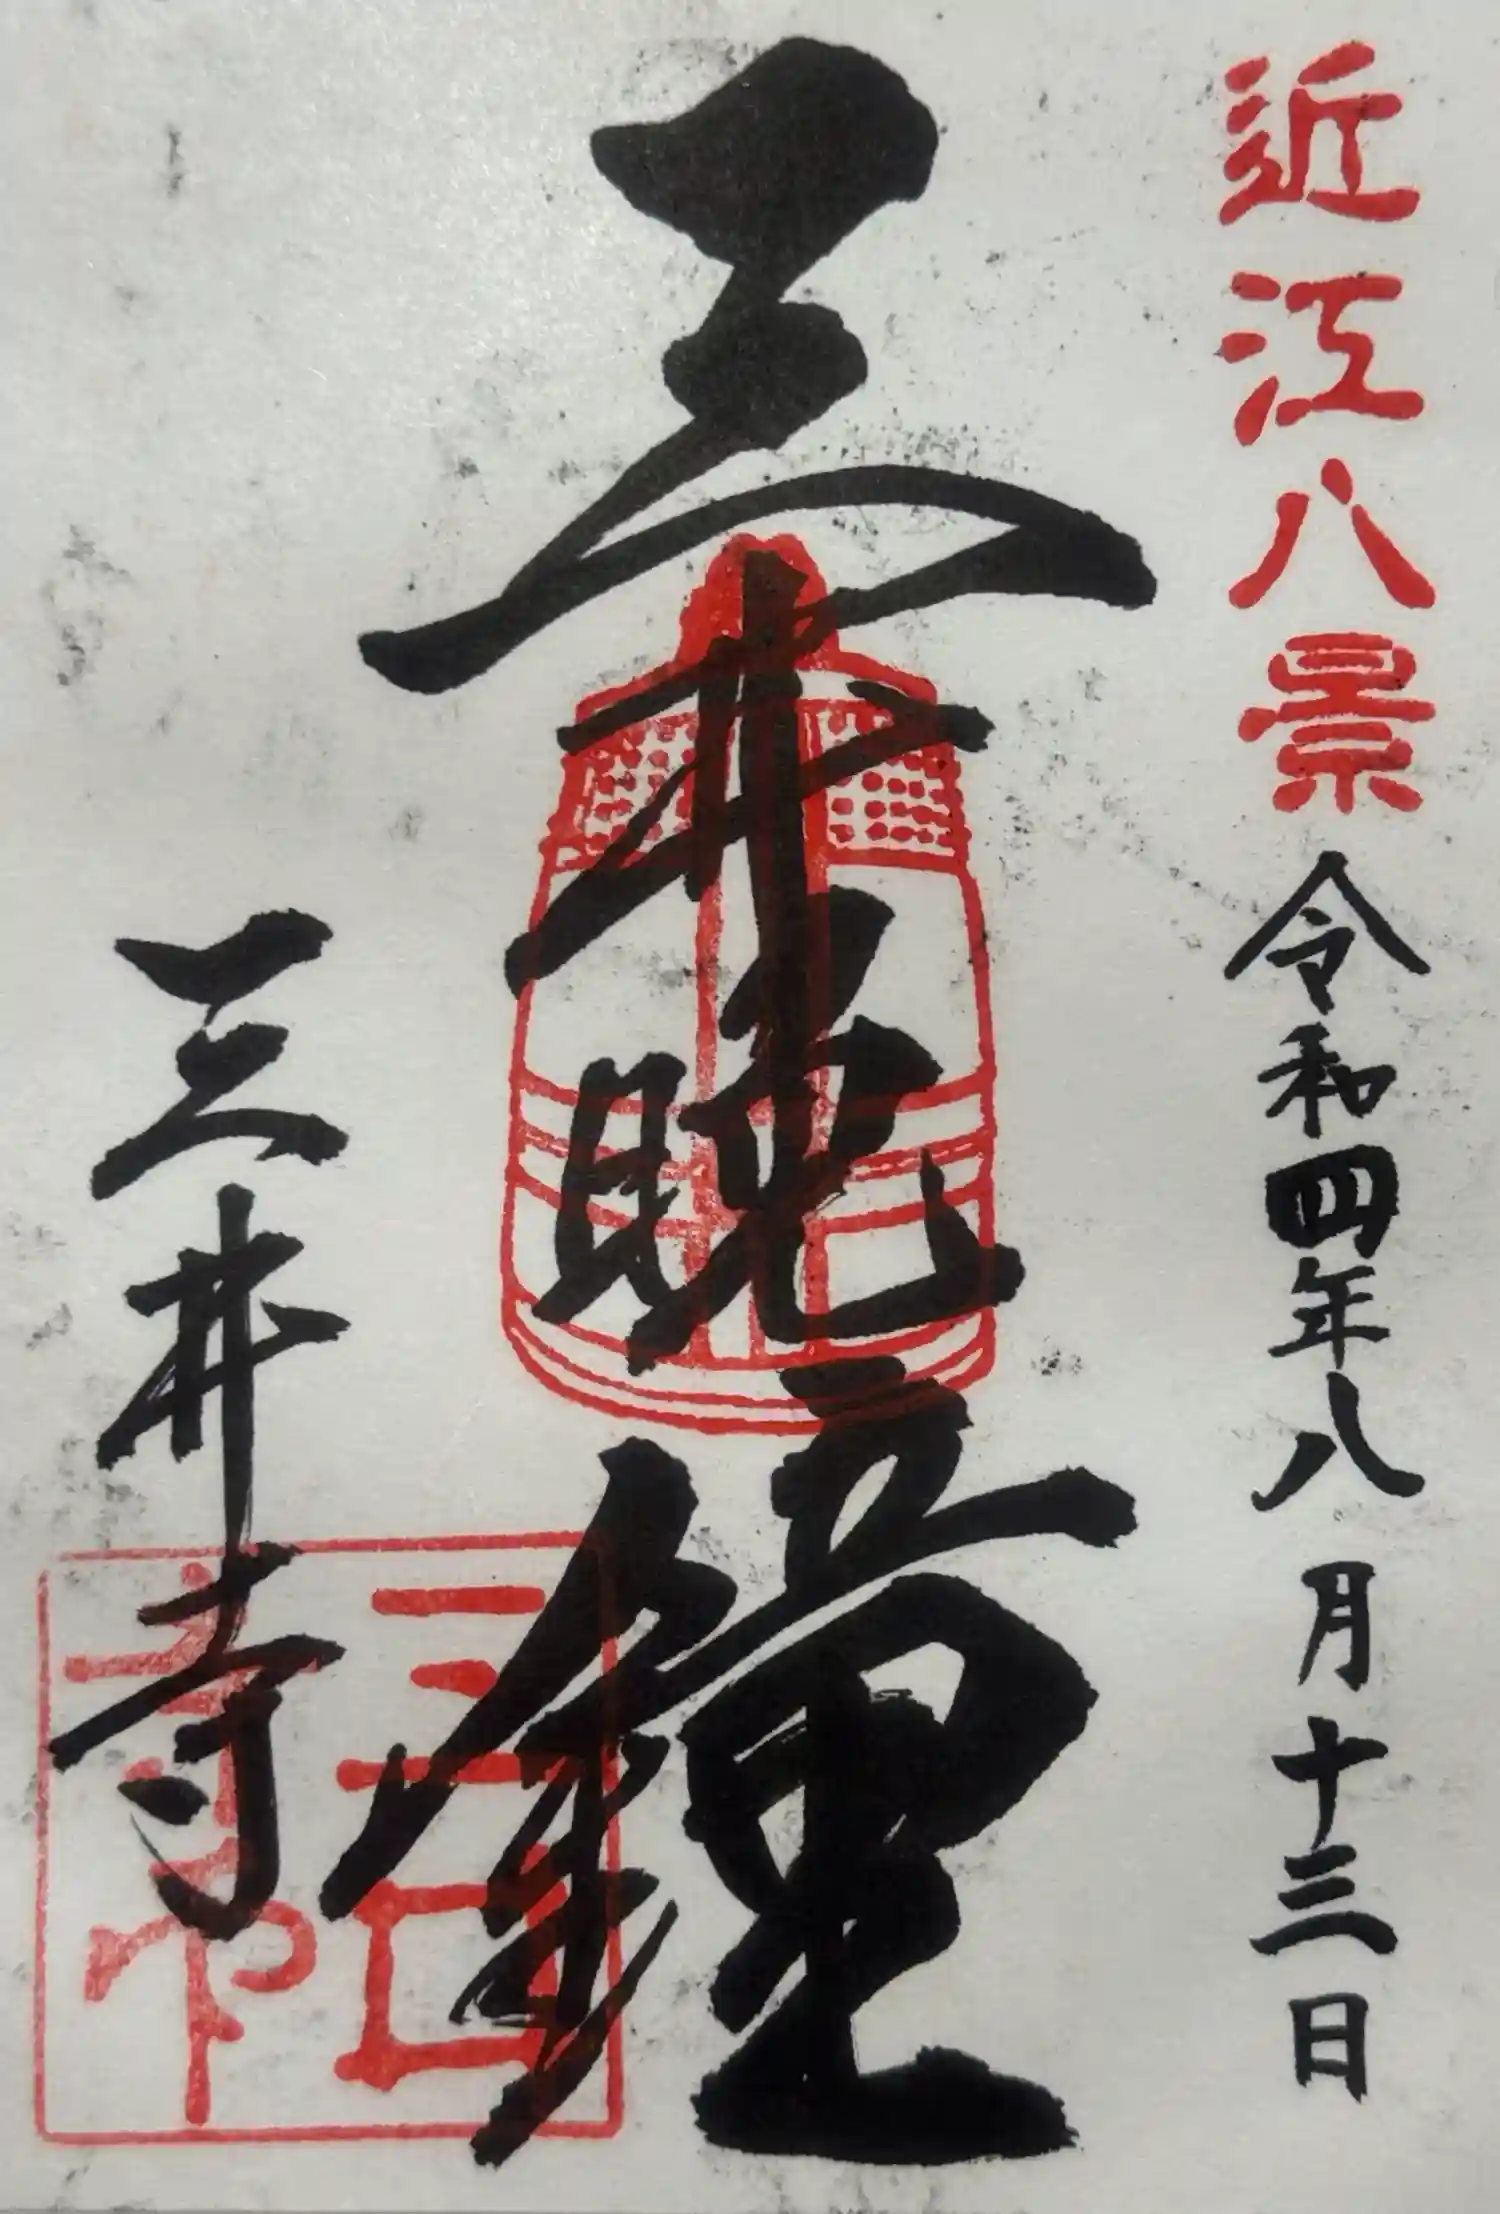 近江八景 令和四年八月十三日
三井晩鐘
三井寺